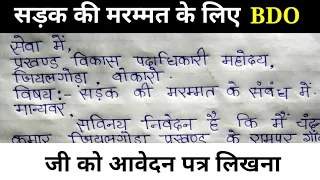 सड़क की मरम्मत के लिए BDO
सेवा में
प्रखण्ड विकास पदाधिकारी महोदय,
जियलगोड़ा बोकारो
विषय:- सड़क की मरम्मत के संबंध में.
मान्यवर,
सविनय निवेदन है कि मैं चंद्र
कुमार जियलगोड़ा प्रखण्ड के रामपुर गाँव
जी को आवेदन पत्र लिखना